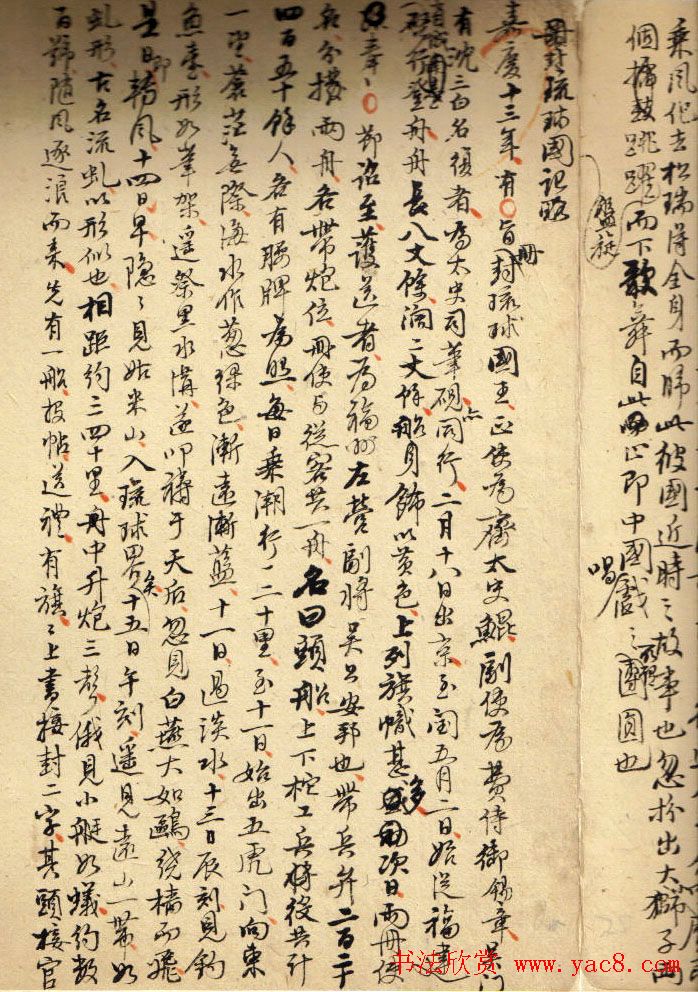 乘風化去松瑞得全身而歸此彼國近時之故事也忽扮出大獅子兩
個擂鼓跳躍而下歌舞自此止即中國戲之團圓也
盤旋
唱
冊封琉球國記略
嘉慶十三年有旨冊封琉球國王正使為齊太史鯤副使為費侍御錫章吳門
有沈三白名復者為太史司筆硯亦同行二月十八日出京至閏五月二日始從福建
登舟舟長八丈餘濶二丈餘船身飾以黃色上列旗幟甚多次日兩冊使
奉節詔至護送者為福州左營副將吳公安邦也帶兵弁二百六十
名分撥兩舟各帶炮位冊使與從客共一舟名曰頭船上下柁工兵將役共計
四百五十餘人各有腰牌為照每日乘潮行一二十里至十一日始出五虎門向東
一望蒼茫無際海水作葱綠色漸遠漸藍十二日過淡水十三日辰刻見釣
魚臺形如筆架遙祭黑水溝遂叩禱于天后忽見白燕大如鷗繞檣而飛
是日即轉風十四日早隱隱見姑米山入琉球界矣十五日午刻遙見遠山一帶如
虬形古名流虬以形似也相距約三四十里舟中升炮三聲俄見小艇如蟻約數
百號隨風逐浪而來先有一船投帖送禮有旗旗上書接封二字其頭接官
书法欣赏 www.yac8.com